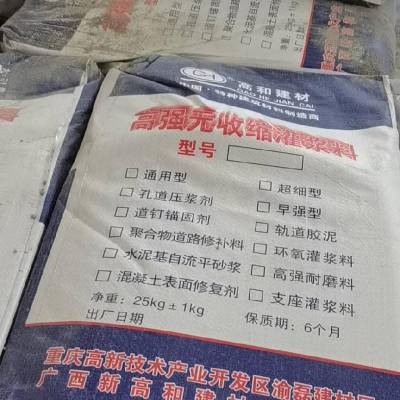 高和建材
GAO HE JIAN CAI
中国·特种建筑材料制造商
高强无收缩灌浆料
型号
通用型
超细型
孔道压浆剂
早强型
道钉锚固剂
轨道胶泥
聚合物道路修补料
环氧灌浆料
水泥基自流平砂浆
高强耐磨料
混凝土表面修复剂
支座灌浆料
净重：25kg±1kg
保质期：6个月
出厂日期
重庆高新技术产业开发区渝磊建材
广西新高和建材